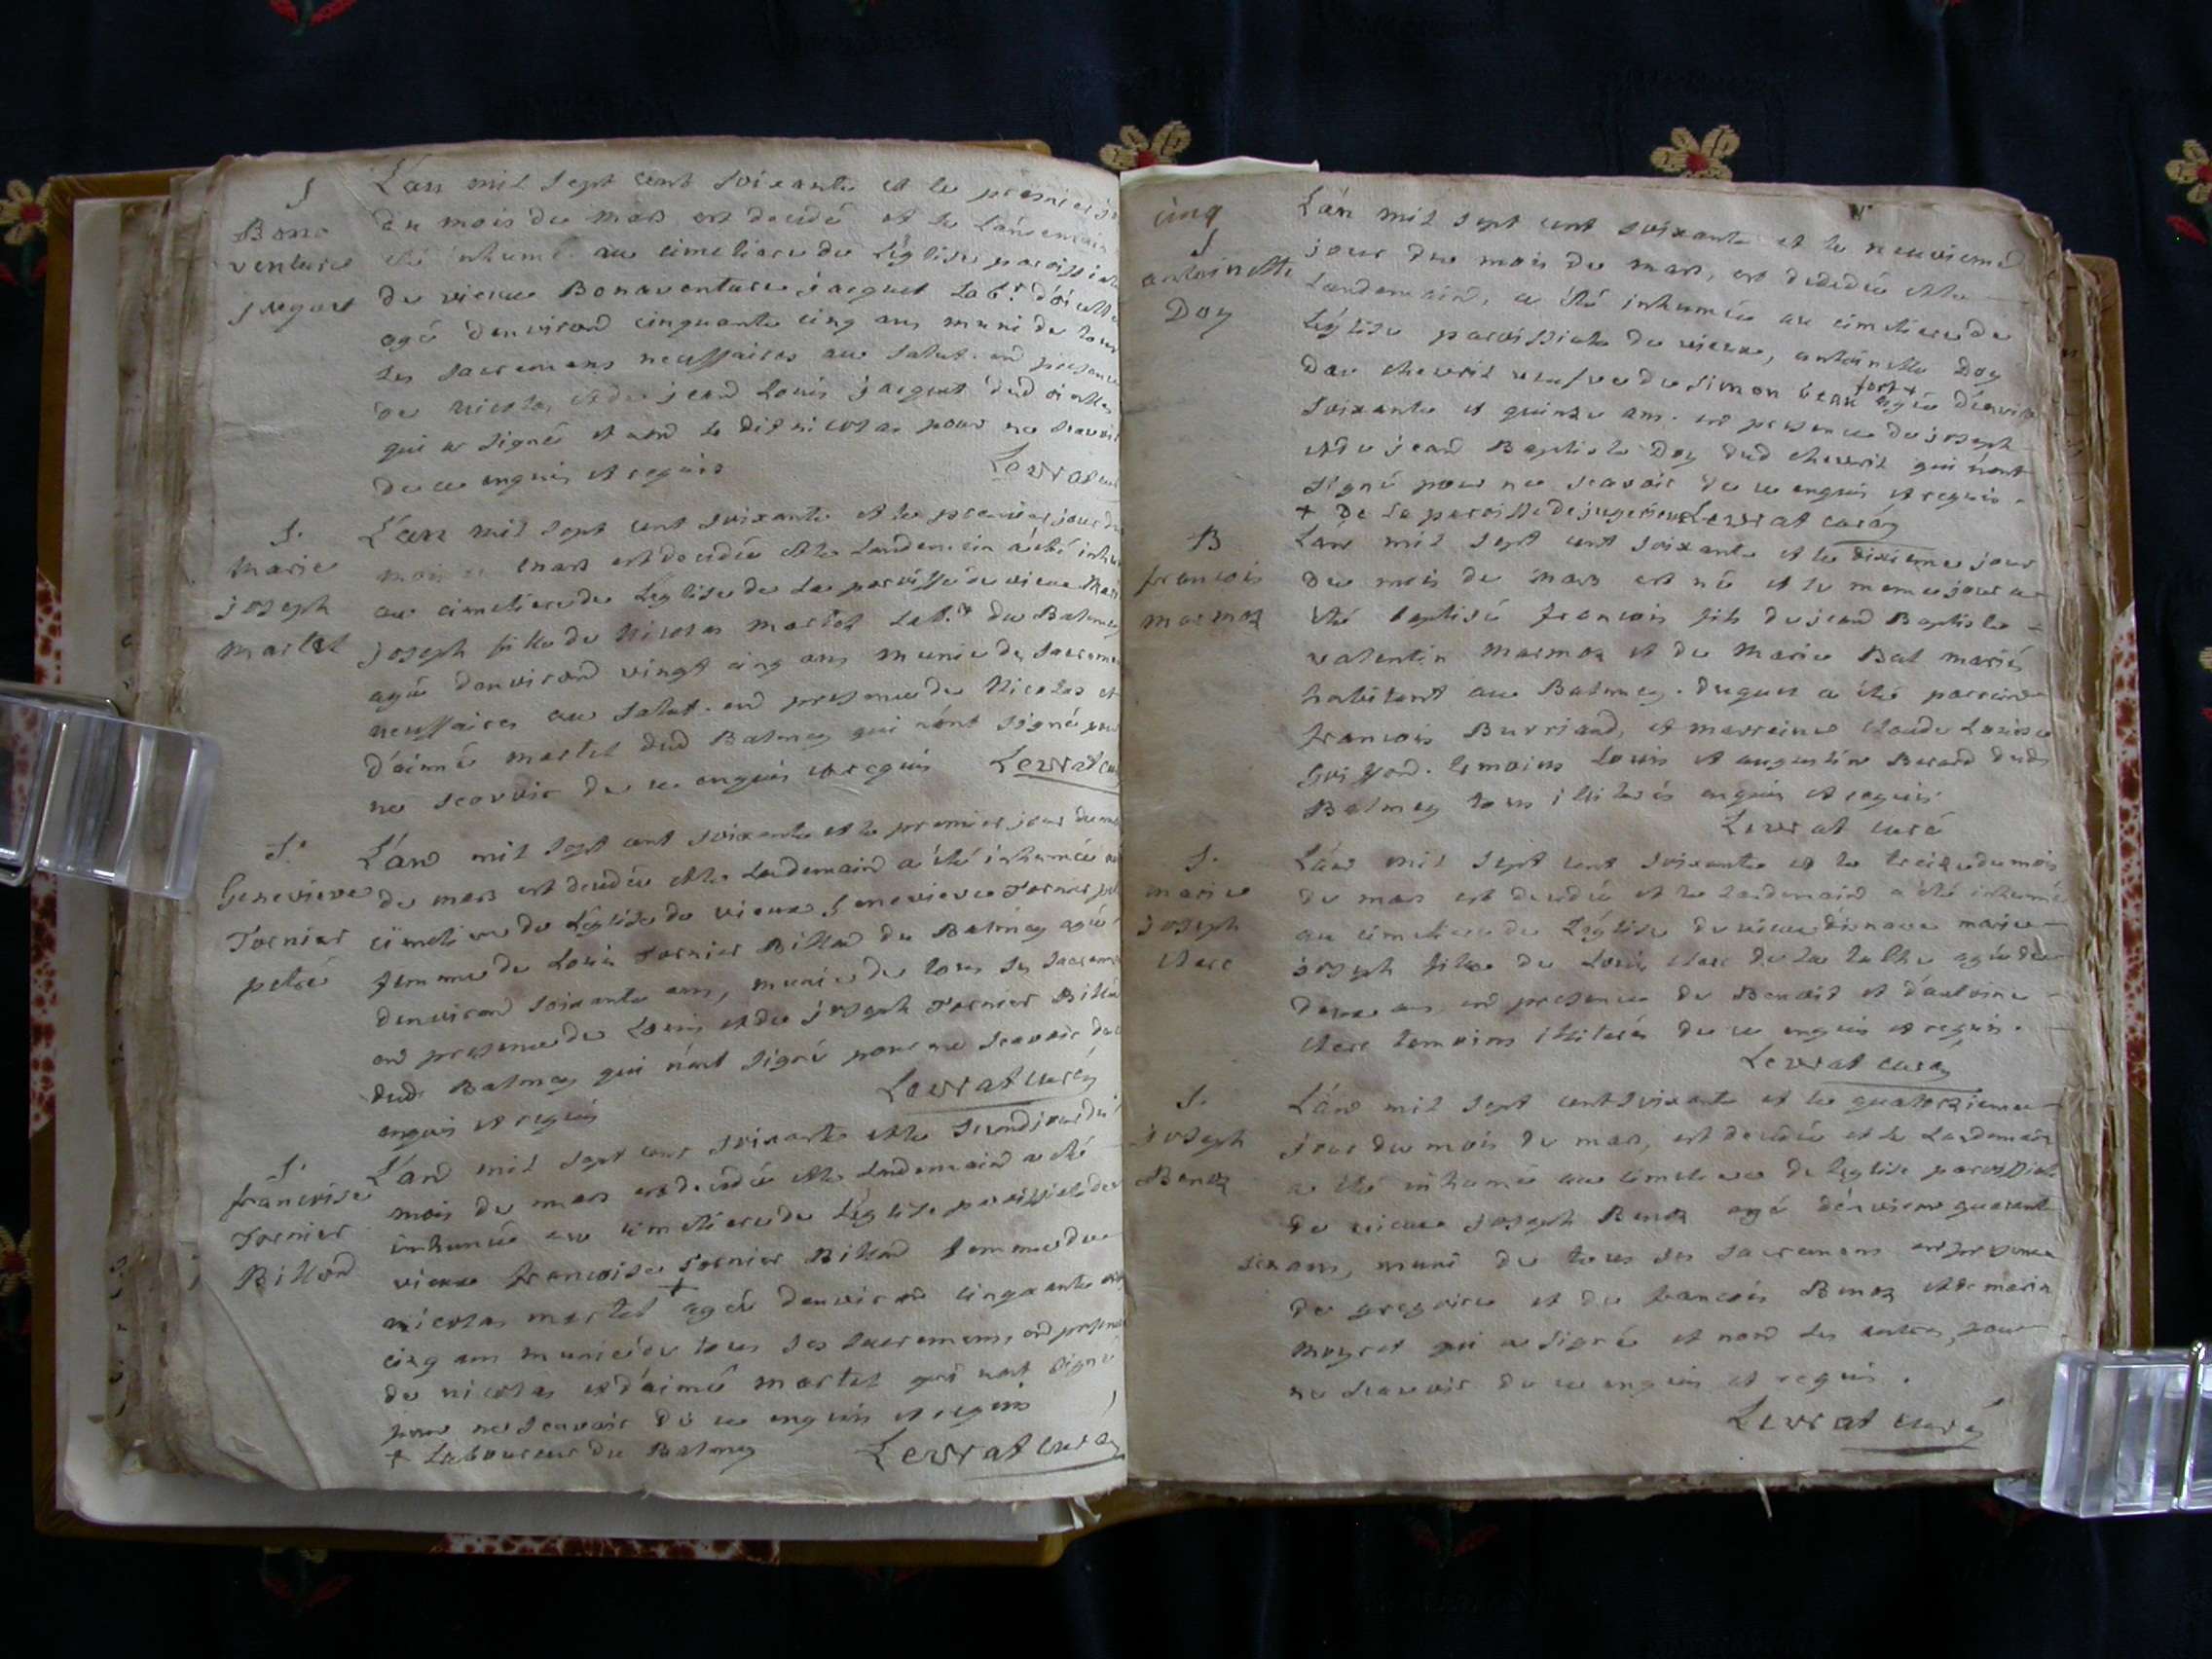 S
Bona
venture
jaquet
L'an mil sept cent soixante et le premier jo
du mois de mars est decedé et le landemain
été inhumé au cimetiere de l'église paroissiale
de vieux Bonaventure jaquet lab.r d'
agé denviron cinquante cinq ans muni de tous
les sacremens necessaires au salut. en presence
de nicolas et de jean Louis jacquet dud
qui a signé et non le dit nicolas pour ne scavoir
de ce enquis et requis
Levrat
S.
Marie
joseph
martel
L'an mil sept cent soixante et le premier jour du
mois de mars est decedée et le landemain a été inhu
au cimetiere de l'église de la paroisse de vieux Mari
joseph fille de Nicolas martel lab.r du Balmey
agée denviron vingt cinq ans munie des sacreme
necessaires au salut. en presence de Nicolas et
d'aimé martel dud Balmey qui n'ont signé pour
ne scavoir de ce enquis et requis Levrat cu
S.
Genevieve
Tornier
L'an mil sept cent soixante et le premier jour du m
de mars est decedée et le landemain a été inhumée au
cimetiere de l'église de vieux Genevieve Tornier
femme de Louis Tornier Billon du Balmey agée
denviron soixante ans, munie de tous ses sacrem
en presence de Louis et de joseph Tornier Billo
dud. Balmey qui n'ont signé pour ne scavoir de c
enquis et requis
Levrat curé
S.
francoise
Tornier
Billon
L'an mil sept cent soixante et le second jour du
mois de mars est decedée et le landemain a été
inhumée au cimetiere de l'église paroissiale de
vieux francoise Tornier Billon femme de
nicolas martel + agée denviron cinquante
cinq ans munie de tous ses sacremens, en presen
de nicolas et d'aimé martel qui n'ont signé
pour ne scavoir de ce enquis et requis
+ Laboureur du Balmey
Levrat curé
cinq
S
antoinette
Doy
L'an mil sept cent soixante et le neuvieme
jour du mois de mars, est decedée et le
landemain, a été inhumée au cimetiere de
l'église paroissiale de vieux, antoinette Doy
de chevril veufve de simon + agée d'environ
soixante et quinze ans. en presence de joseph
et de jean Baptiste Doy dud chevril qui n'ont
signé pour ne scavoir de ce enquis et requis.
+ de la paroisse de jujurieux Levrat curé
B
francois
marmoz
L'an mil sept cent soixante et le dixieme jour
du mois de mars est né et le meme jour a
été baptisé francois fils de jean Baptiste
valentin marmoz et de Marie Bal mariés
habitant au Balmey. duquel a été parrain
francois Burriand, et marreine claude Louise
. temoins Louis et augustin Berard dud
Balmey tous illiterés enquis et requis
Levrat curé
S.
marie
joseph
clerc
L'an mil sept cent soixante et le treize du mois
de mars est decedée et le landemain a été inhumé
au cimetiere de l'église de vieux marie
joseph fille de Louis clerc de la agée de
deux ans, en presence de Benoit et d'antoine
clerc temoins illiterés de ce enquis et requis.
Levrat curé
S.
joseph
Benoz
L'an mil sept cent soixante et le quatorzieme
jour du mois de mars, est decedé et le landemain
a été inhumé au cimetiere de l'eglise paroissiale
de vieux joseph Benoz agé d'environ quarante
six ans, muni de tous ses sacremens en presence
de gregoire et de francois Benoz et de marin
moyret qui a signé et non les autres, pour
ne scavoir de ce enquis et requis.
Levrat curé